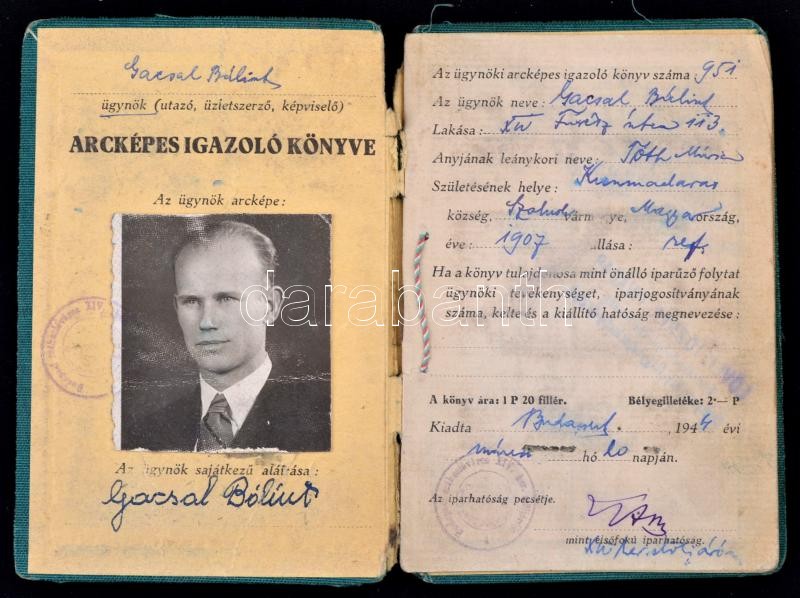 Gacsal Bálint
ügynök (utazó, üzletszerző, képviselő)
ARCKÉPES IGAZOLÓ KÖNYVE
Az ügynök arcképe:
Az ügynök sajátkezű aláírása:
Gacsal Bálint
Az ügynöki arcképes igazoló könyv száma 951
Az ügynök neve: Gacsal Bálint
Lakása: XIV Füredi utca 113.
Anyjának leánykori neve: Tóth Mária
Születésének helye: Kunmadaras
község, Szolnok vármegye, Magyarország,
éve: 1907 vallása: ref.
Ha a könyv tulajdonosa mint önálló iparűző folytat
ügynöki tevékenységet, iparjogosítványának
száma, kelte és a kiállító hatóság megnevezése:
A könyv ára: 1 P 20 fillér. Bélyegilletéke: 2·— P
Kiadta Budapest. , 1944 évi
hó 20 napján.
Az iparhatóság pecsétje.
mint elsőfokú iparhatóság.
darabanth